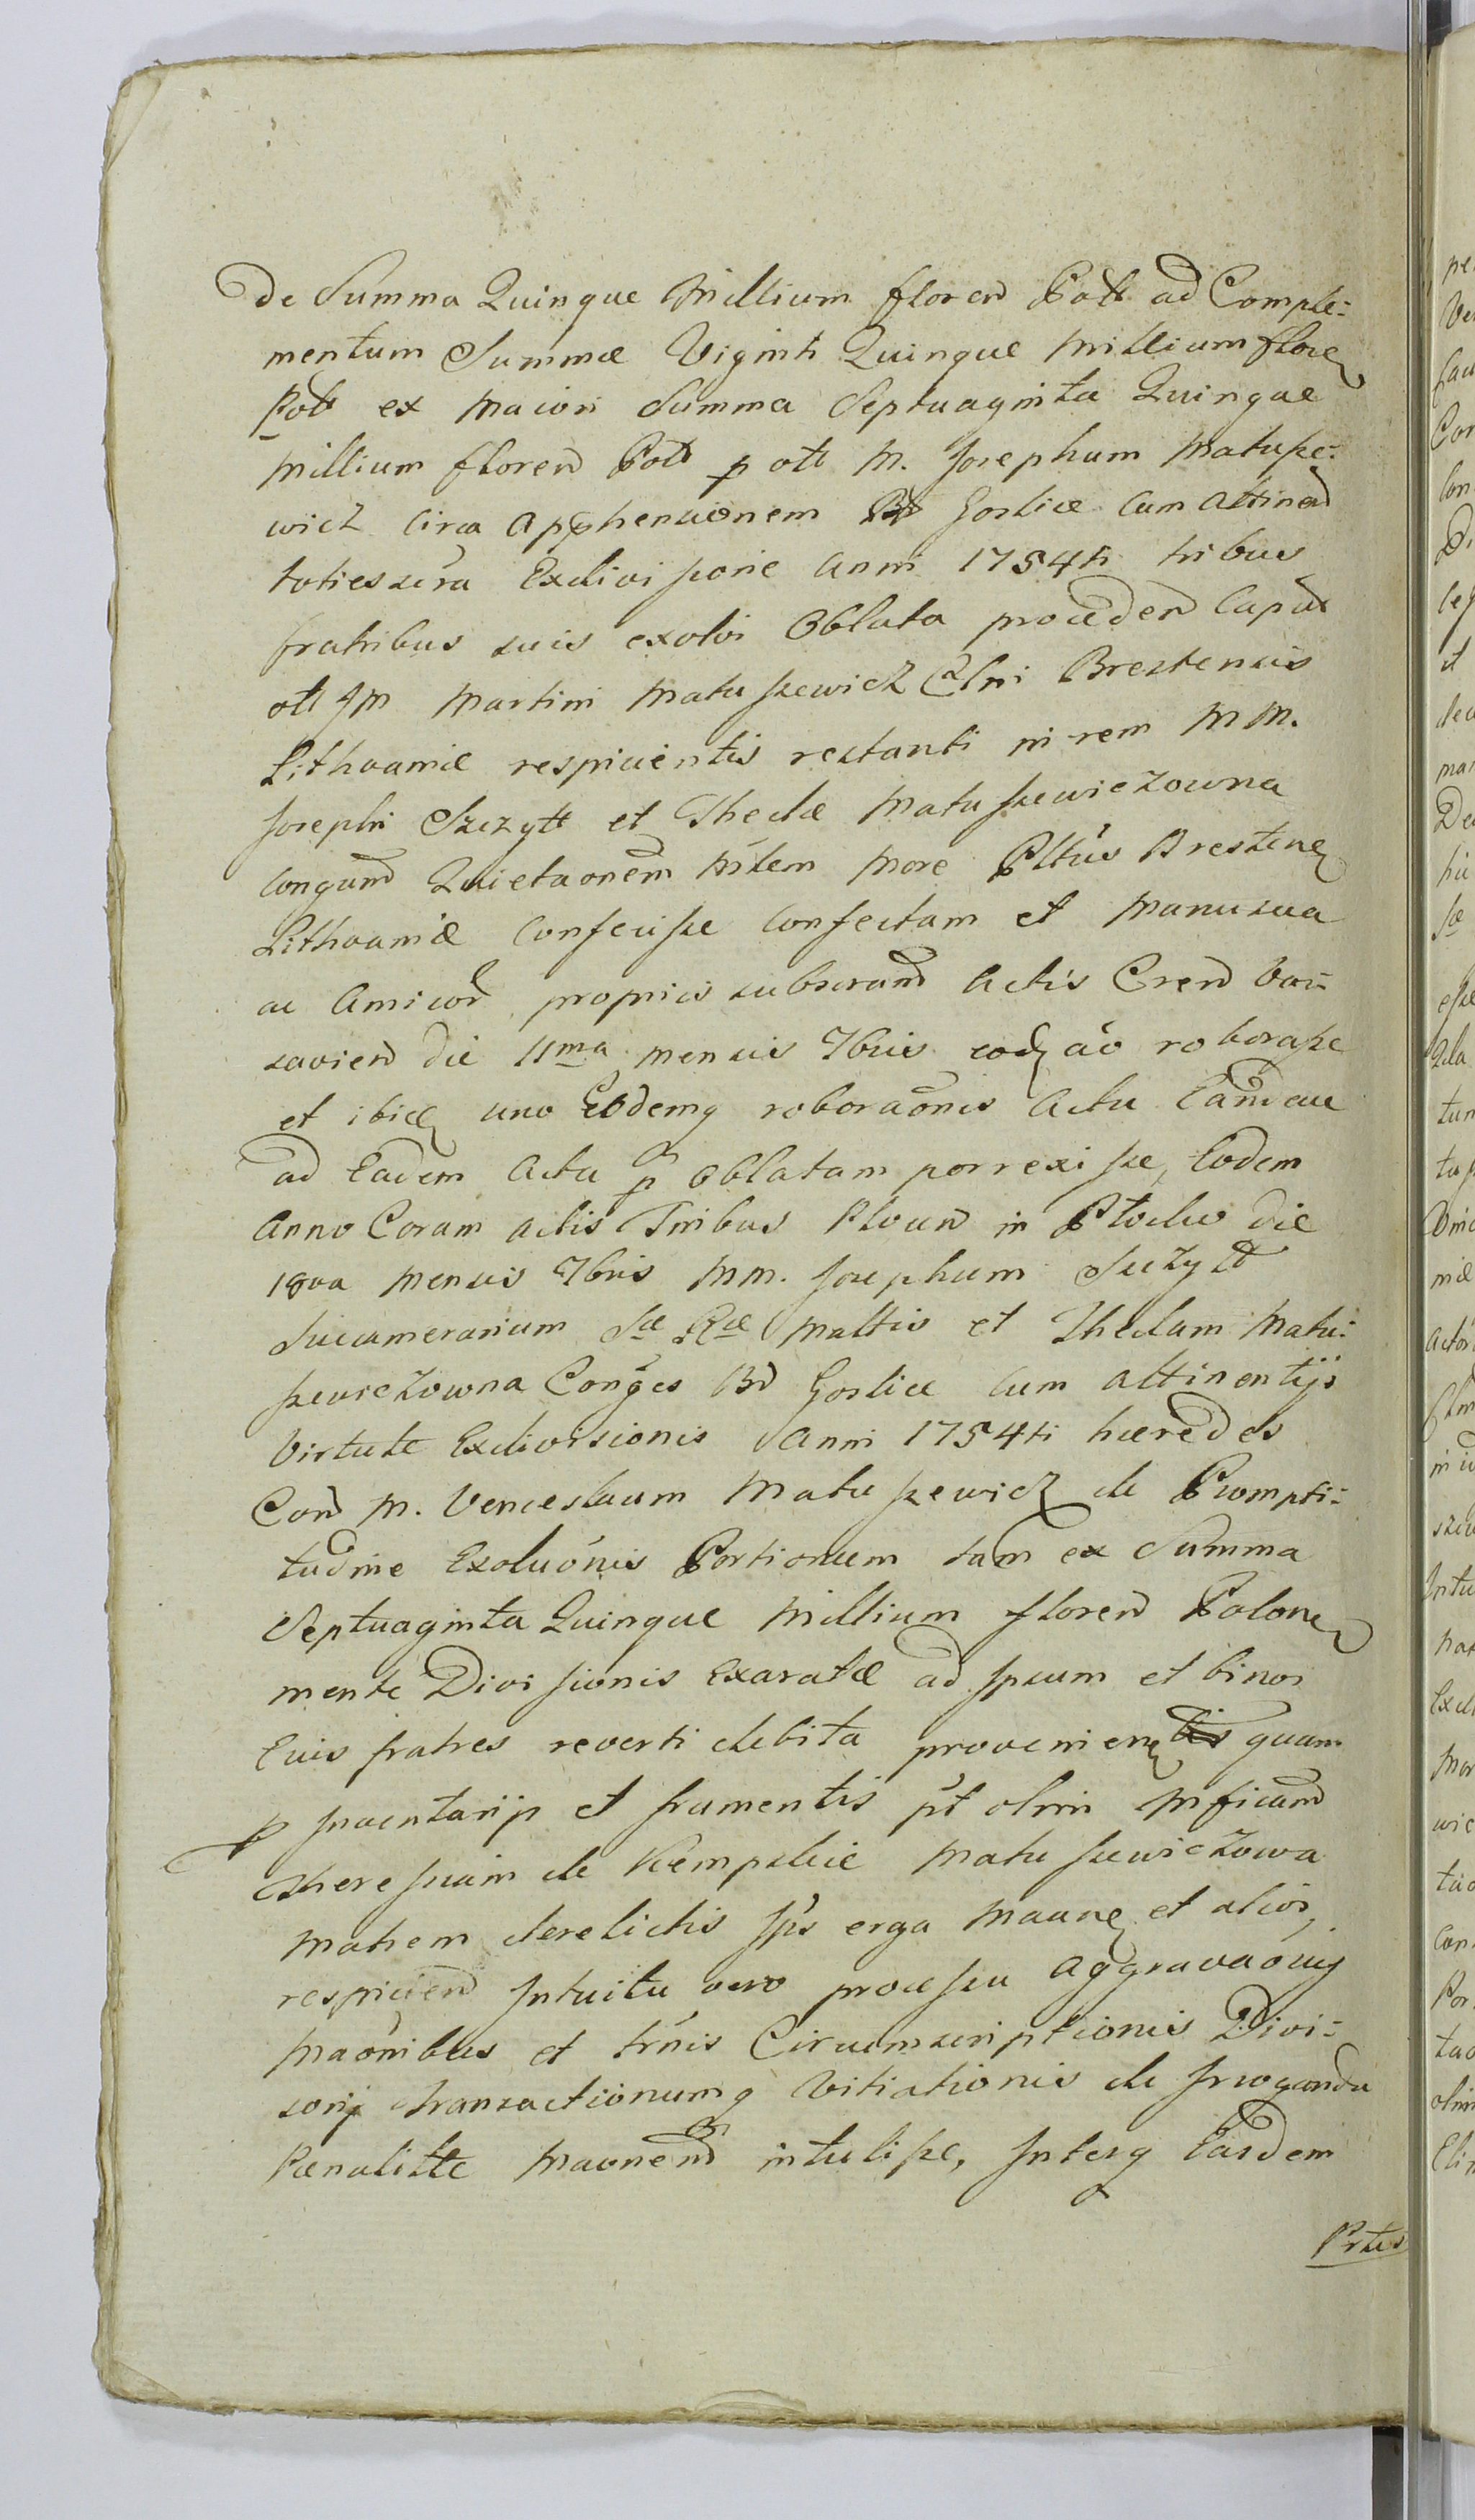 De Summa Quinque Millium floren Poll ad Comple=
mentum Summæ Viginti Quinque Millium flore
Poll ex Maiori Summa Septuaginta Quinque
Millium floren Poll p oll M. Josephum Matusze=
wicz circa apphensionem Bd Goslice cum attinen
toties Exdivisione Anni 1754ti tribus
fratribus suis exolvi Oblata proceden Capax
oll JM Martini Matuszewicz Clni Brestensis
Lithvaniæ respicientis restanti in rem MM.
Josephi Szczytt et Theclæ Matuszewiczowna
Congum Quietaonem more Plttus Brestene
Lithvaniæ confecisse confectam et manu sua
ac Amicor propriis subscram Actis Cren Var=
savien die 11ma mensis 7bris eod ao roborasse
et ibid uno Eodemq roboraonis Actu Eandem
ad Eadem Acta p oblatam porrexisse, Eodem
Anno Coram actis Tribus Plocen in Plocko die
18va mensis 7bris MM. Josephum Szczytt
Succamerarium Sæ Ræ Mattis et Theclam Matu=
szewiczowna Conges Bd Goslice cum attinentijs
Virtute Exdivisionis Anni 1754ti hæredes
Con M. Venceslaum Matuszewicz de Prompti=
tudine Exoluonis Portionum tam ex Summa
Septuaginta Quinque Millium floren Polone
mente Divisionis Exaratæ ad Ipsum et binos
Euis fratres reverti debita provenien quam
p Inventarijs et frumentis pt olim Mficam
Theressiam de Kempskie Matuszewiczowa
Matrem derelictis Ips erga et alios
respicien Intuitu vero processu Aggravaonis
Maonibus et trnis Circumscriptionis Divi=
sorij Transactionumq Vitiationis de Irroganda
Pænalitte maonem intulisse, Interq Easdem
Prtes